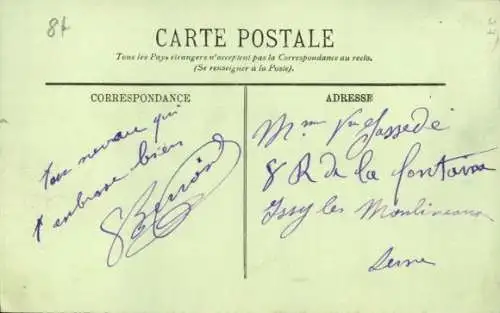 8f
CARTE POSTALE
Tous les Pays étrangers n'acceptent pas la Correspondance au recto.
(Se renseigner à la Poste).
CORRESPONDANCE
ton neveu qui
t'embrasse bien
ADRESSE
Mme Vve Jassedé
8 R de la fontaine
Issy les Moulineaux
Seine